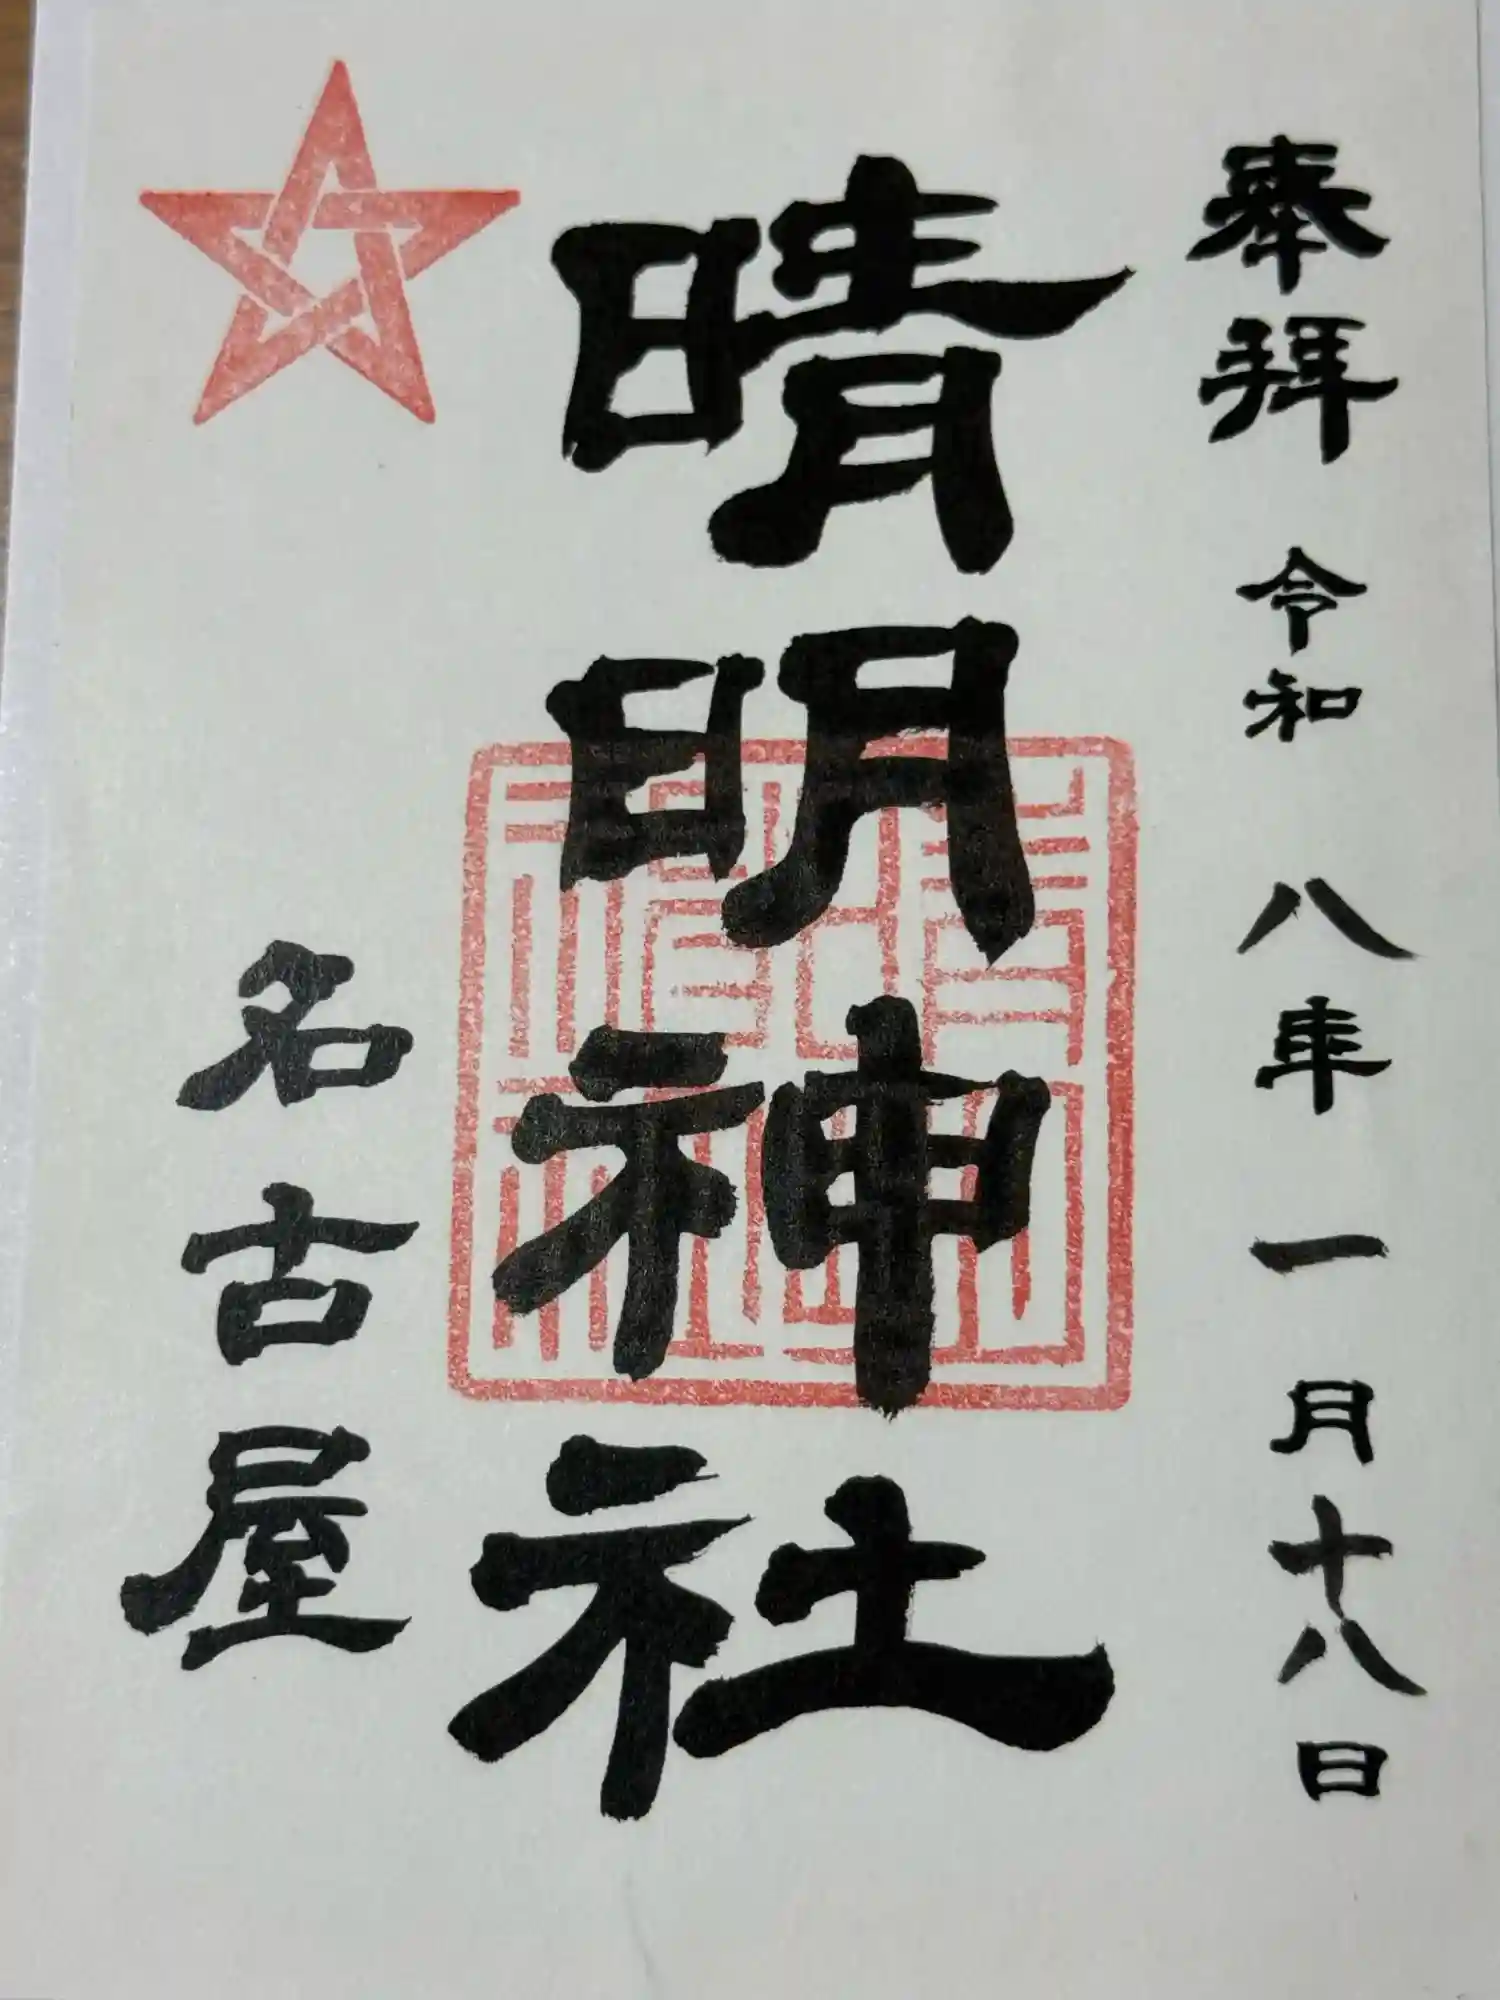 奉拝 令和 八年 一月十八日
晴明神社
名古屋